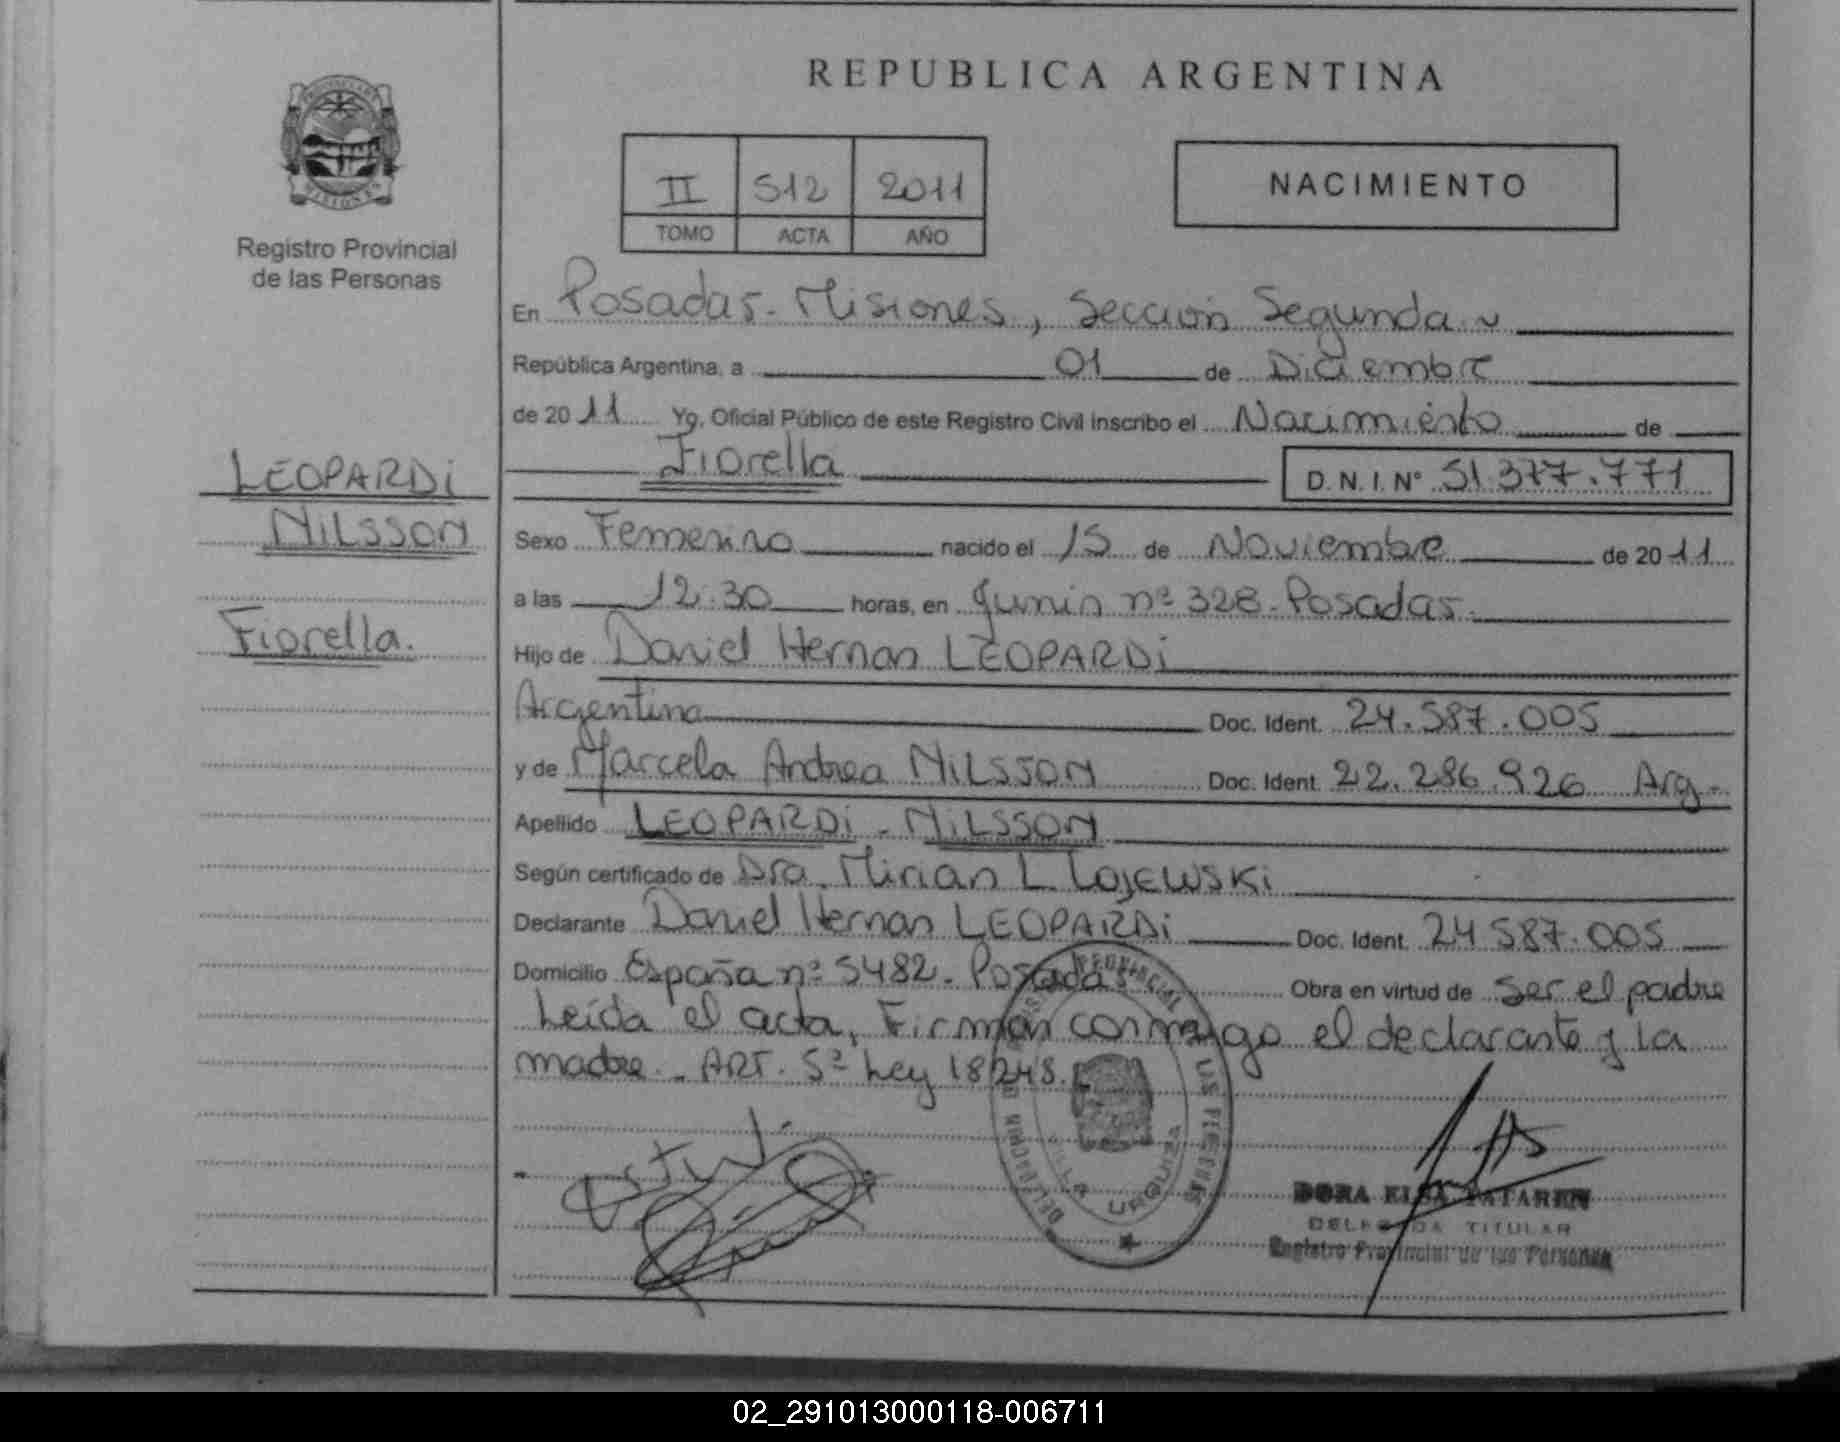 REPUBLICA ARGENTINA
II 512 2011
TOMO ACTA AÑO
NACIMIENTO
Registro Provincial
de las Personas
LEOPARDi
NiLSSON
Fiorella.
En Posadas. Misiones, Sección Segunda
República Argentina, a 01 de Diciembre
de 20 11 Yo, Oficial Público de este Registro Civil Inscribo el Nacimiento de
Fiorella D.N.I.N° 51.377.771
Sexo Femenino nacido el 15 de Noviembre de 20 11
a las 12:30 horas, en Junin nº 328. Posadas.
Hijo de Daniel Hernan LEOPARDi
Argentina Doc. Ident. 24.587.005
y de Marcela Andrea NiLSSON Doc. Ident. 22.286.926 Arg.
Apellido LEOPARDi - NiLSSON
Según certificado de Dra. Mirian L. LOJEWSKi
Declarante Daniel Hernan LEOPARDi Doc. Ident. 24.587.005
Domicilio España nº 5482. Posadas Obra en virtud de ser el padre
Leída el acta, Firman conmigo el declarante y la
madre. - ART. 5º Ley 18248.
PROVINCIAL
VILLA URQUIZA
DORA ELSA TATAREN
DELEGADA TITULAR
Registro Provincial de las Personas
02_291013000118-006711